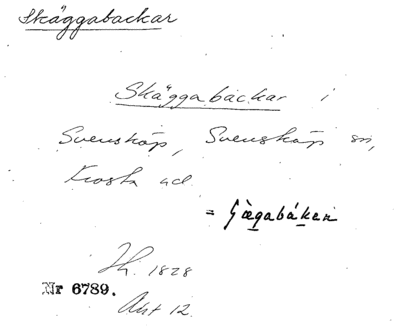 Skäggabackar
Skäggabackar i
Svensköp, Svensköp sn,
Frosta hd
= 
Jh. 1828
Nr 6789.
Akt 12.